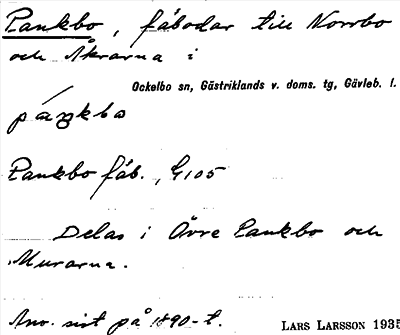 Pankbo, fäbodar till Norrbo
och Åkrarna i
Ockelbo sn, Gästriklands v. doms. tg, Gävleb. l.
páŋkbo
Pankbo fäb., G105
Delas i Övre Pankbo och
Murarna.
Anv. sist på 1890-t.
LARS LARSSON 1935